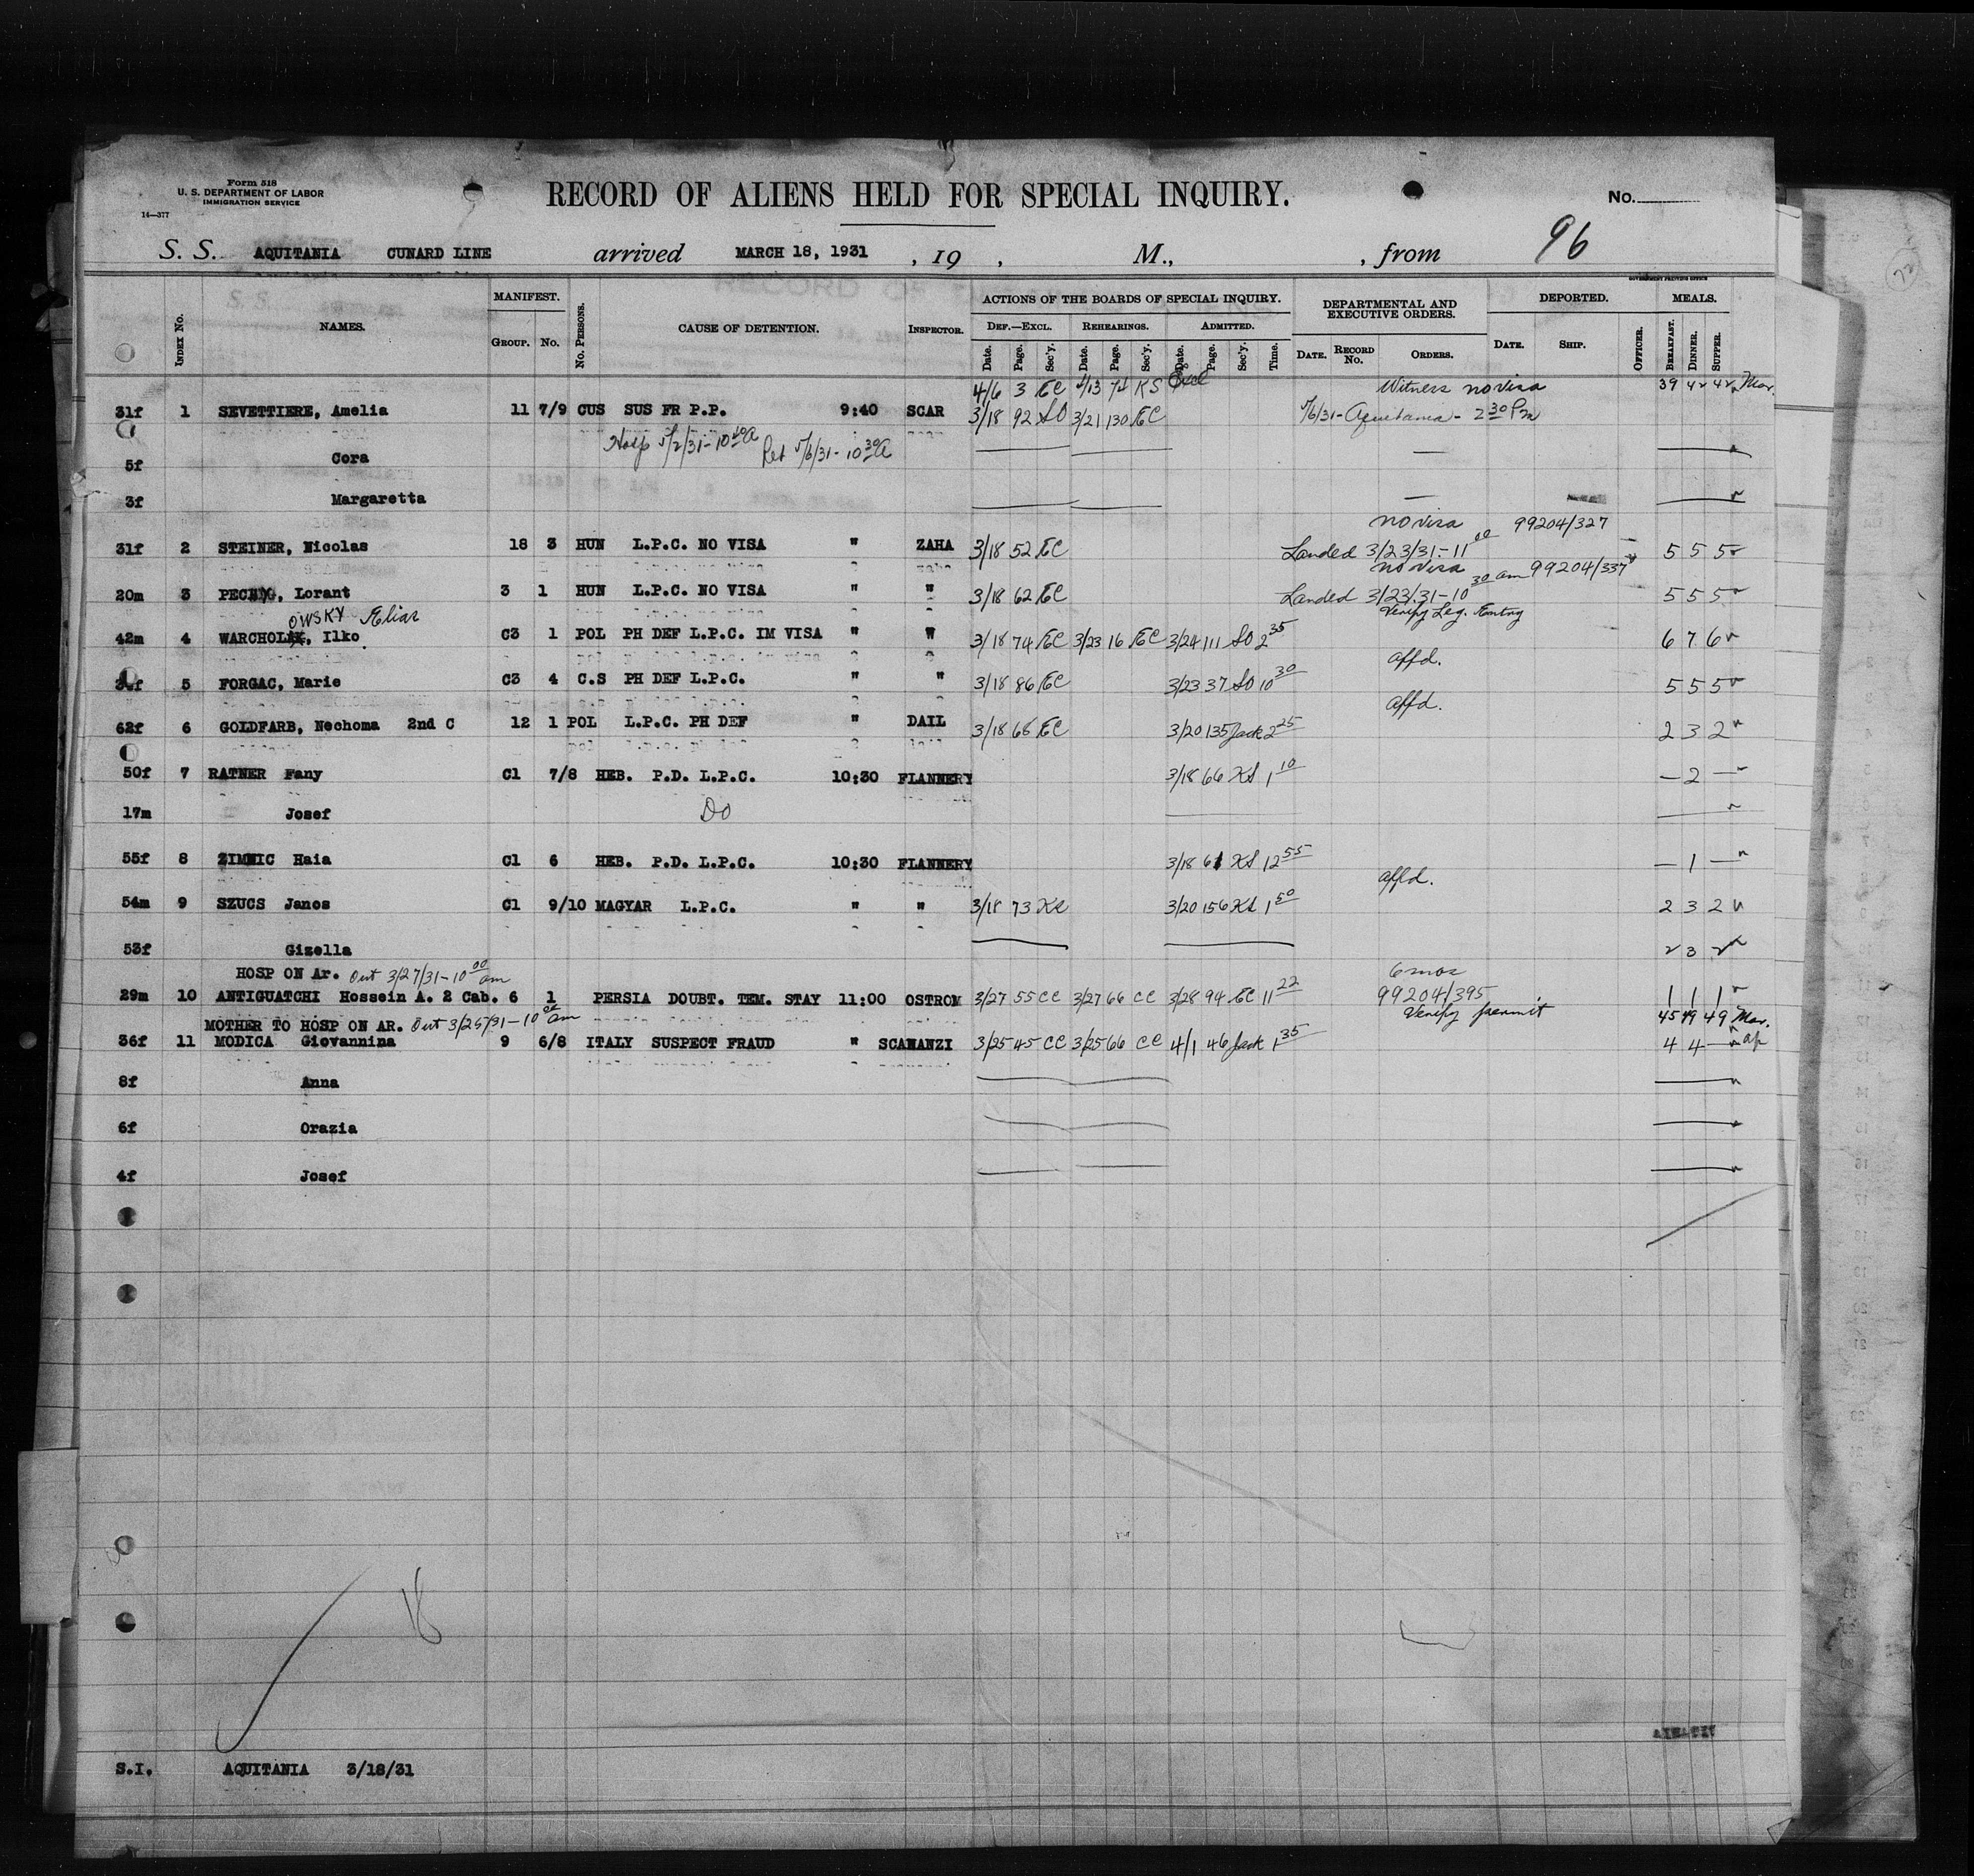 Form 518
U. S. DEPARTMENT OF LABOR
IMMIGRATION SERVICE
14—377
RECORD OF ALIENS HELD FOR SPECIAL INQUIRY.
No.
96
S. S. AQUITANIA CUNARD LINE arrived MARCH 18, 1931 , 19 , M., , from
GOVERNMENT PRINTING OFFICE
INDEX No. NAMES. MANIFEST. GROUP. No. No. PERSONS. CAUSE OF DETENTION. INSPECTOR. ACTIONS OF THE BOARDS OF SPECIAL INQUIRY. DEPARTMENTAL AND EXECUTIVE ORDERS. DEPORTED. MEALS.
DEF.—EXCL. REHEARINGS. ADMITTED.
Date. Page. Sec'y. Date. Page. Sec'y. Date. Page. Sec'y. Time. DATE. RECORD No. ORDERS. DATE. SHIP. OFFICER. BREAKFAST. DINNER. SUPPER.
4/6 3 EC 4/13 74 KS Witness no visa 39 42 42 Mar.
31f 1 SEVETTIERE, Amelia 11 7/9 CUS SUS FR P.P. 9:40 SCAR 3/18 92 SO 3/21 130 EC 5/6/31 - Aquitania - 2 30 Pm
Hosp 5/2/31 - 10 40 A Ret 5/6/31 - 10 30 A
5f Cora
3f Margaretta
no visa 99204/327
31f 2 STEINER, Nicolas 18 3 HUN L.P.C. NO VISA " ZAHA 3/18 52 EC Landed 3/23/31 - 11 00 5 5 5
no visa 99204/337
20m 3 PECNY, Lorant 3 1 HUN L.P.C. NO VISA " " 3/18 62 EC Landed 3/23/31 - 10 30 am 5 5 5
OWSKY Elias Verify Leg. Entry
42m 4 WARCHOL, Ilko C3 1 POL PH DEF L.P.C. IM VISA " " 3/18 74 EC 3/23 16 EC 3/24 111 SO 2 35 6 7 6
affd.
5 FORGAC, Marie C3 4 C.S PH DEF L.P.C. " " 3/18 86 EC 3/23 37 SO 10 30 5 5 5
affd.
62f 6 GOLDFARB, Nechoma 2nd C 12 1 POL L.P.C. PH DEF " DAIL 3/18 68 EC 3/20 135 Jack 2 25 2 3 2
50f 7 RATNER Fany C1 7/8 HEB. P.D. L.P.C. 10:30 FLANNERY 3/18 66 KS 1 10 — 2 —
17m Josef Do
55f 8 ZIMNIC Haia C1 6 HEB. P.D. L.P.C. 10:30 FLANNERY 3/18 61 KS 12 55 — 1 —
affd.
54m 9 SZUCS Janos C1 9/10 MAGYAR L.P.C. " " 3/18 73 KS 3/20 156 KS 1 50 2 3 2
53f Gizella 2 3 2
HOSP ON Ar. Out 3/27/31 - 10 00 am 6 mos
29m 10 ANTIGUATCHI Hossein A. 2 Cab. 6 1 PERSIA DOUBT. TEM. STAY 11:00 OSTROM 3/27 55 CC 3/27 66 CC 3/28 94 EC 11 22 99204/395 1 1 1
MOTHER TO HOSP ON AR. Out 3/25/31 - 10 am Verify permit 45 49 49 Mar.
36f 11 MODICA Giovannina 9 6/8 ITALY SUSPECT FRAUD " SCANANZI 3/25 45 CC 3/25 66 CC 4/1 46 Jack 1 35 4 4 — ap
8f Anna
6f Orazia
4f Josef
18
S.I. AQUITANIA 3/18/31